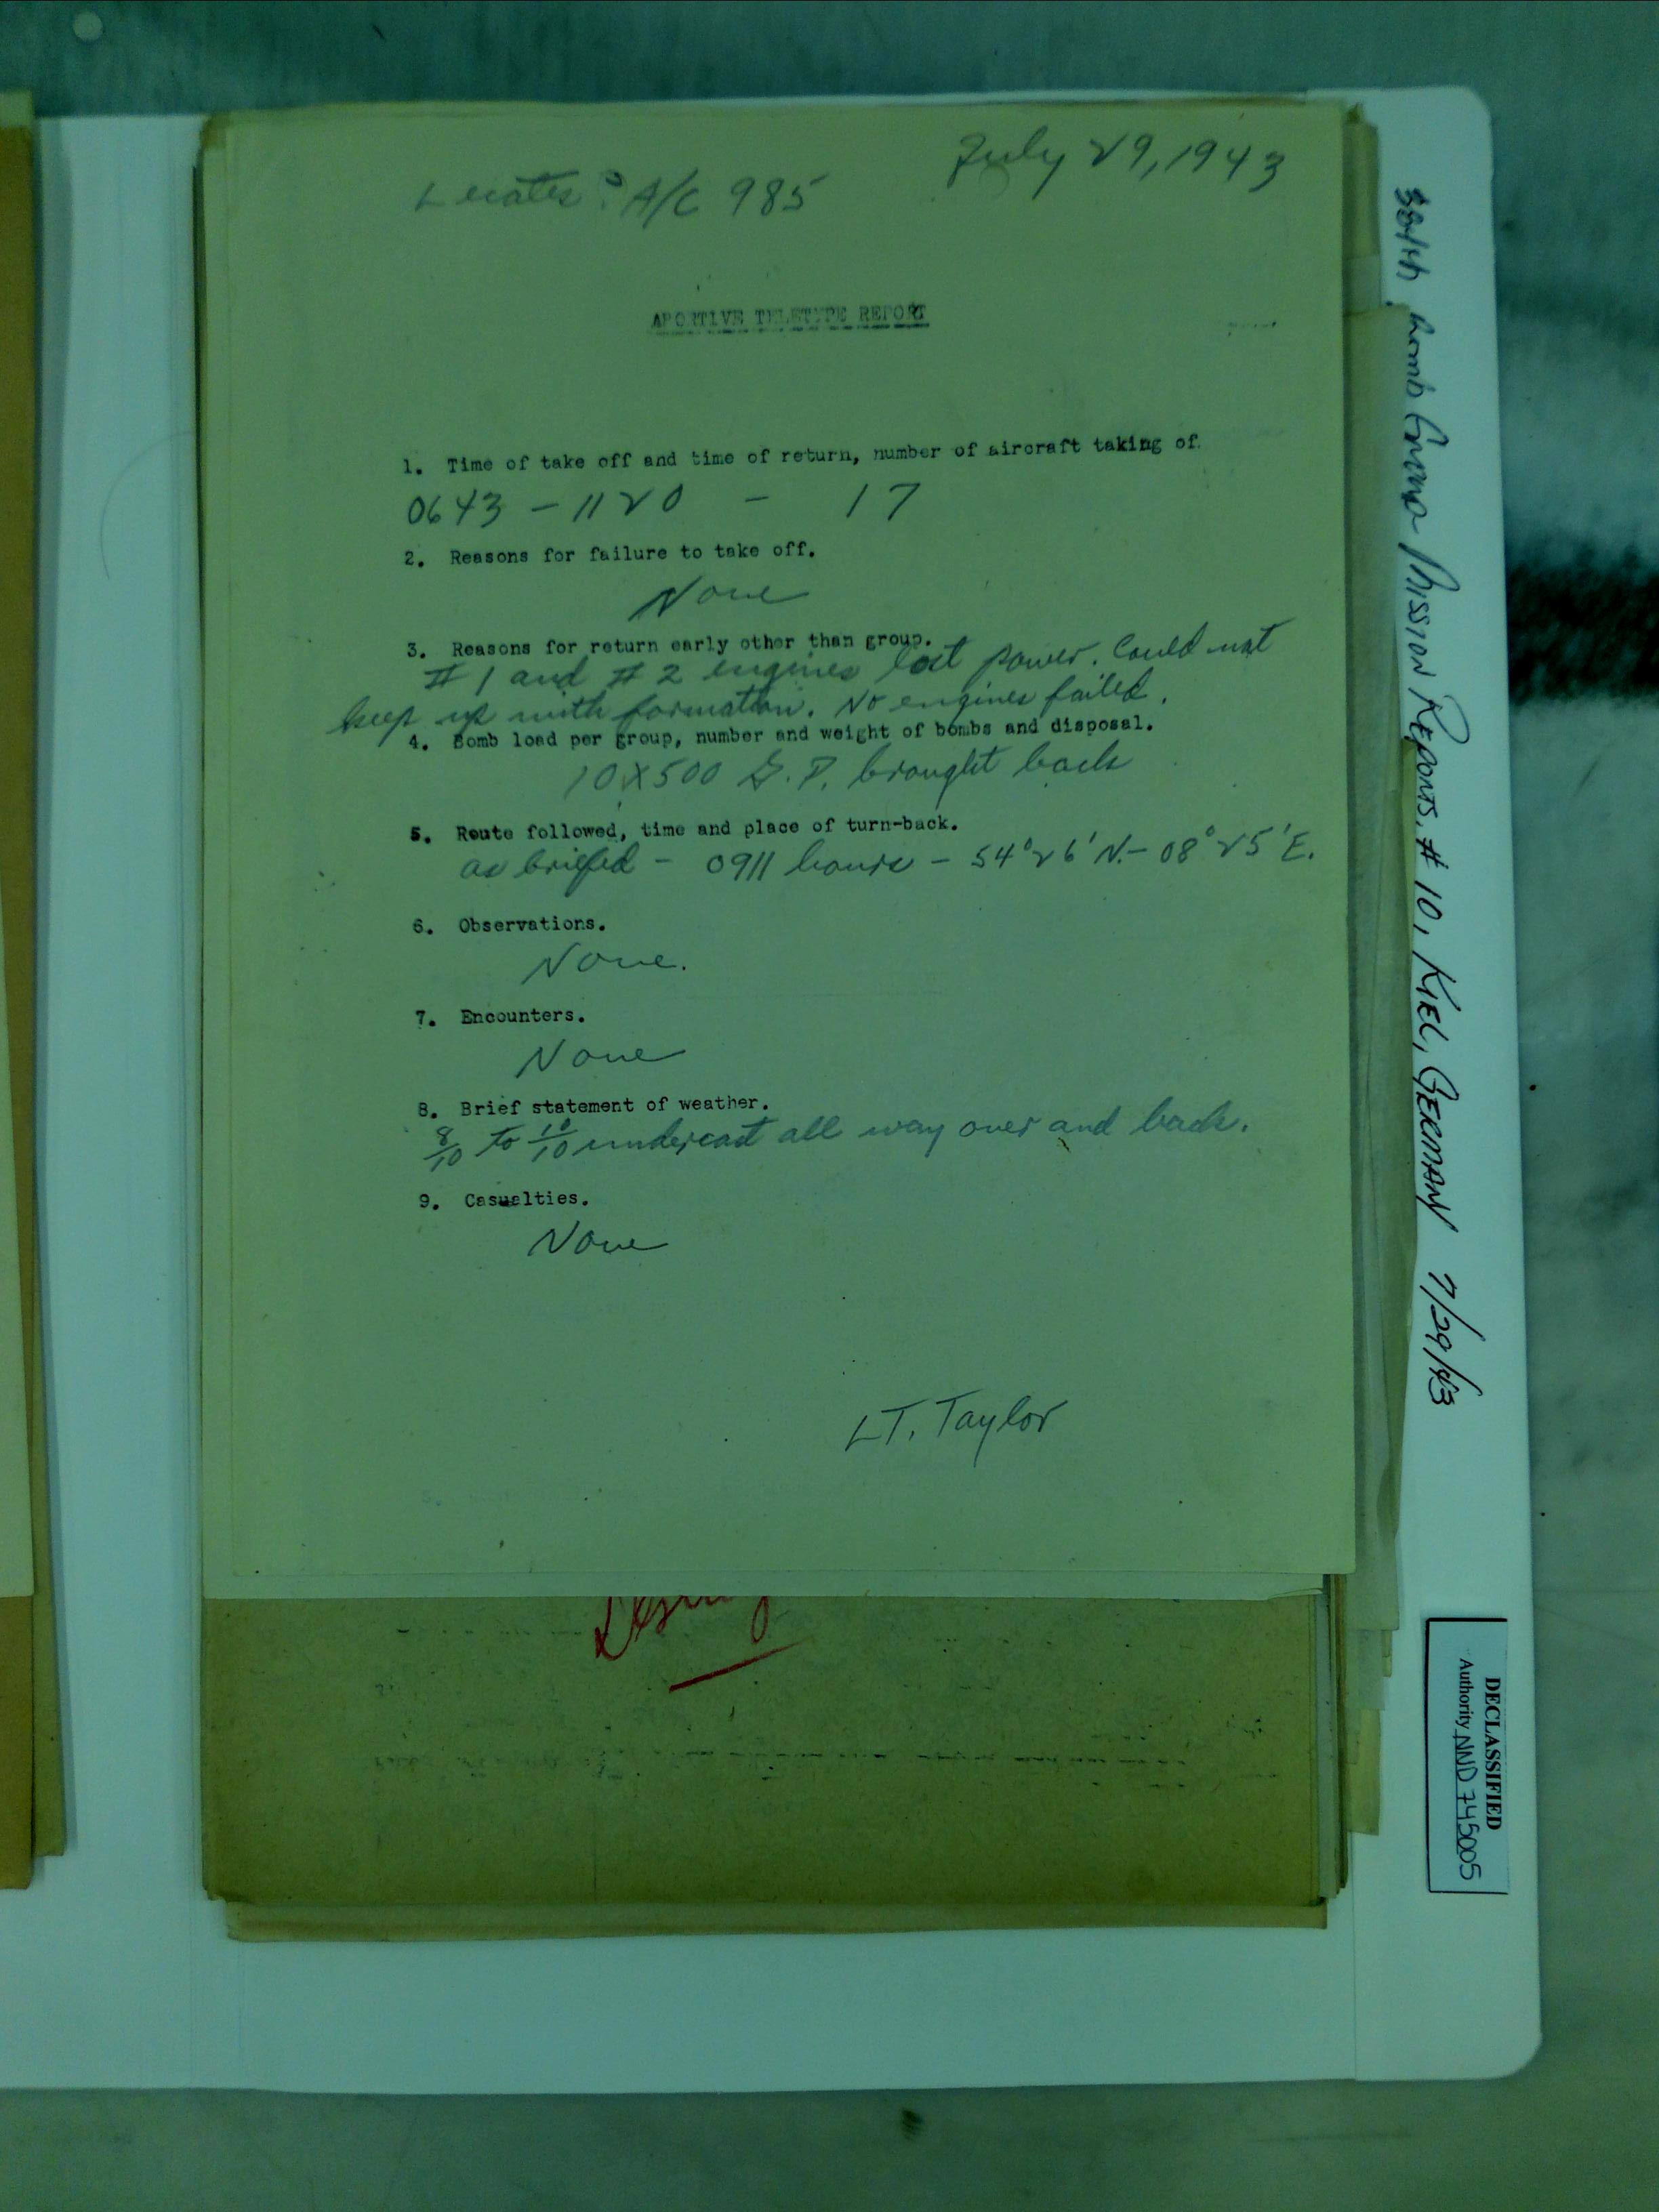 July 29, 1943
A/C 985
APORTIVE TELETYPE REPORT
1. Time of take off and time of return, number of aircraft taking of.
0643 - 1120 - 17
2. Reasons for failure to take off.
None
3. Reasons for return early other than group.
# 1 and # 2 engines lost power. Could not
keep up with formation. No engines failed.
4. Bomb load per group, number and weight of bombs and disposal.
10X500 G.P. brought back
5. Route followed, time and place of turn-back.
as briefed - 0911 hours - 54°26'N. - 08°25'E.
6. Observations.
None.
7. Encounters.
None
8. Brief statement of weather.
8/10 to 10/10 undercast all way over and back.
9. Casualties.
None
LT. Taylor
Bomb Group Mission Reports. # 10, KIEL, GERMAN 7/29/43
DECLASSIFIED
Authority NND 745005